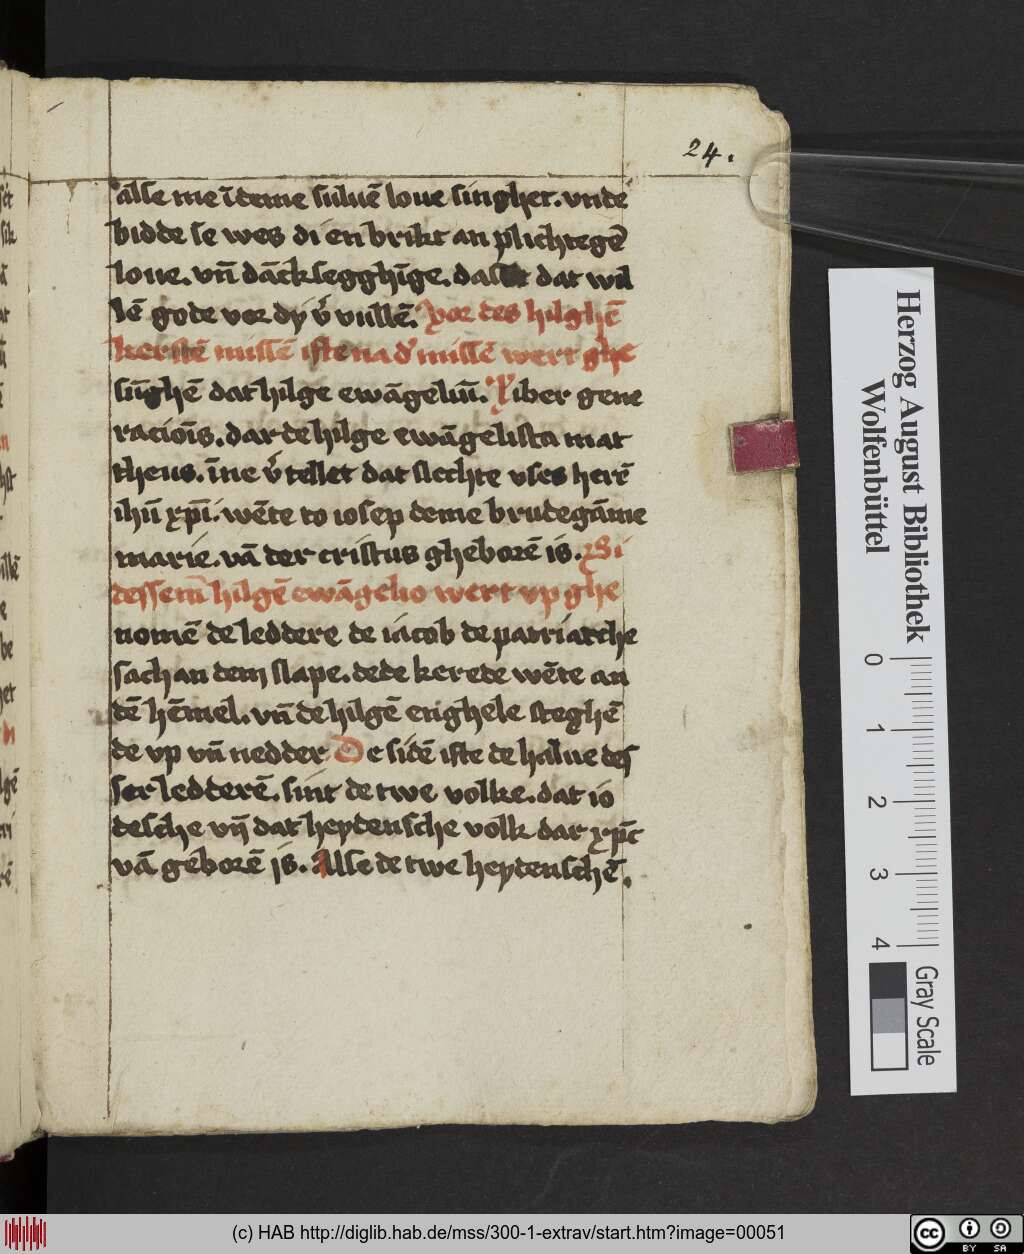 24.
alse me ī deme suluē loue singhet. vnde
bidde se wes di en brikt an plichtegē
loue. vn̄ dāck segghīge. dat dat wil
lē gode vor dy v̓ vullē. Vor des hilghē
kerstē missē iste na d̓ missē wert ghe
sūghē dat hilge ewāgeliū. Liber gene
racioīs. dar de hilge ewāgelista mat
theus. īne v̓tellet dat slechte vses herē
ihū xp̄i. wēte to iosep deme brudegāme
marie. vā der cristus gheborē is. Bi
dessem̄ hilgē ewāgelio wert vp ghe
nomē de leddere de iacob de patriarche
sach an dem slape. de de kerede wēte an
dē hēmel. vn̄ de hilgē enghele steghē
de vp vn̄ nedder De sidē iste de halue des
ser ledderē. sint de twe volke. dat io
desche vn̄ dat heydensche volk dar xp̄c
vā geborē is. Alse de twe heydenschē.
Herzog August Bibliothek
Wolfenbüttel
0 1 2 3 4
Gray Scale
(c) HAB http://diglib.hab.de/mss/300-1-extrav/start.htm?image=00051
CC BY SA